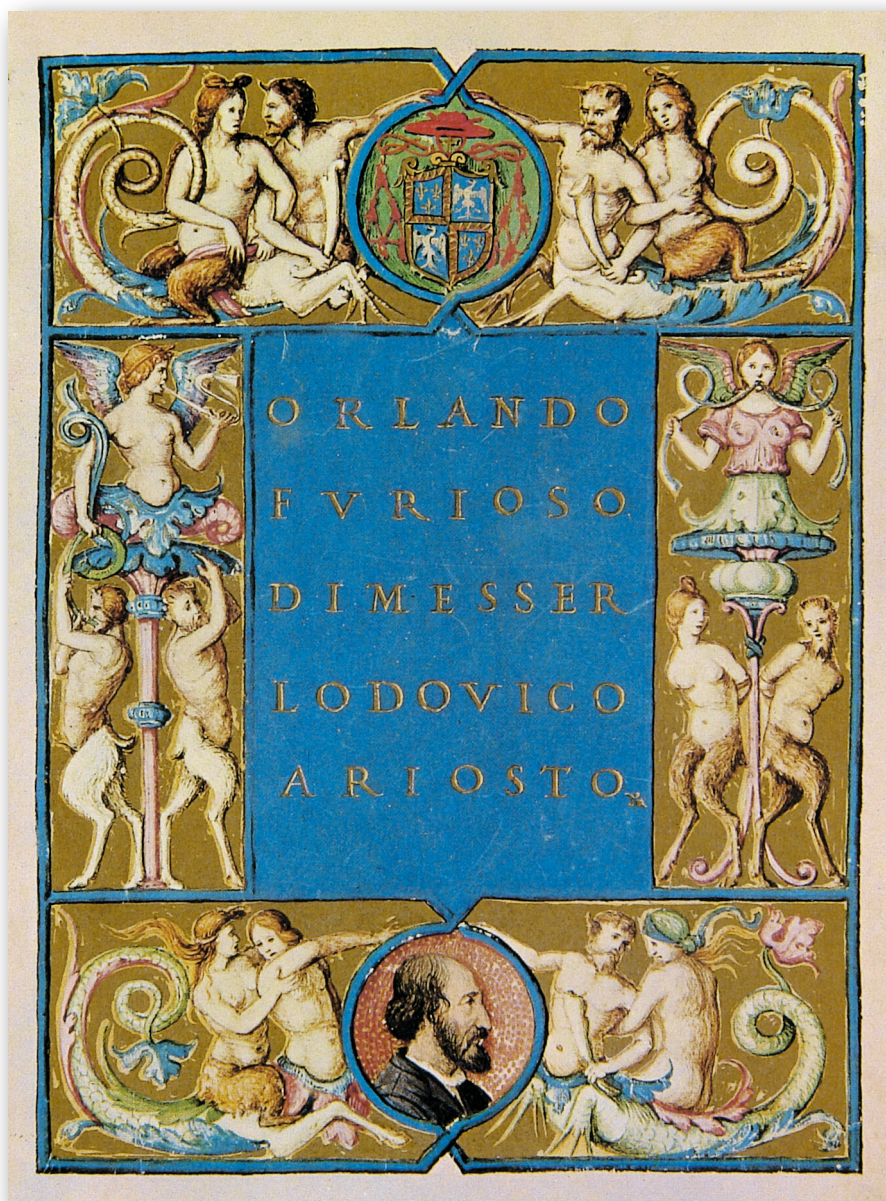 ORLANDO
FVRIOSO
DI MESSER
LODOVICO
ARIOSTO